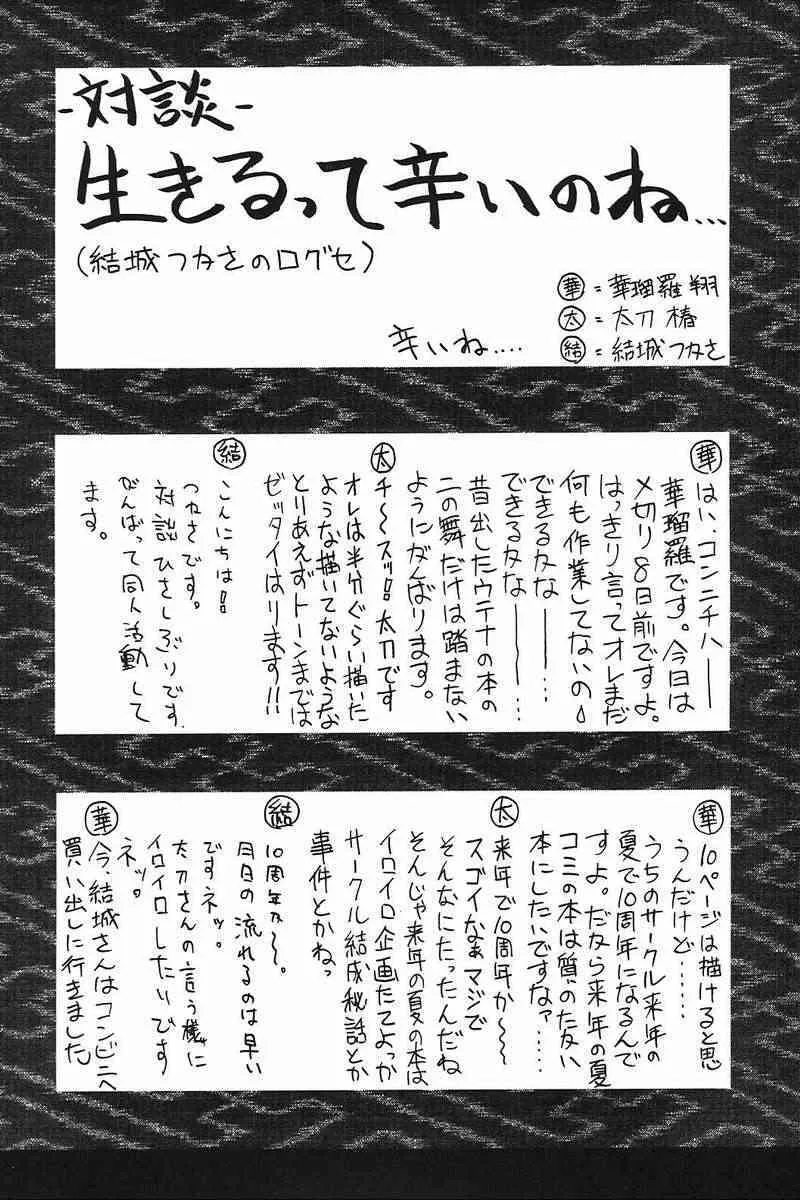 -対談-
生きるって辛いのね…
(結城つかさのログセ)
華=華瑠羅翔
太=太刀椿
結=結城つかさ
辛いね….
華
はい、コンニチハ――
華瑠羅です。今日は
〆切り8日前ですよ。
はっきり言ってオレまだ
何も作業してないの
できるかな――…
できるかな――…
昔出したウテナの本の
二の舞だけは踏まない
ようにがんばります。
太
チ〜スッ!!太刀です
オレは半分ぐらい描いた
ような描いてないような
とりあえずトーンまでは
ゼッタイはります!!
結
こんにちは!!
つかさです。
対談ひさしぶりです。
がんばって同人活動して
ます。
華
10ページは描けると思
うんだけど……
うちのサークル来年の
夏で10周年になるんで
すよ。だから来年の夏
コミの本は質のたかい
本にしたいですなァ……
太
来年で10周年か〜〜
スゴイなぁマジで
そんなにたったんだね
そんじゃ来年の夏の本は
イロイロ企画たてよっか
サークル結成秘話とか
事件とかねっ
結
10周年か〜。
月日の流れるのは早い
ですネッ。
太刀さんの言う様に
イロイロしたいです
ネッ。
華
今、結城さんはコンビニへ
買い出しに行きました